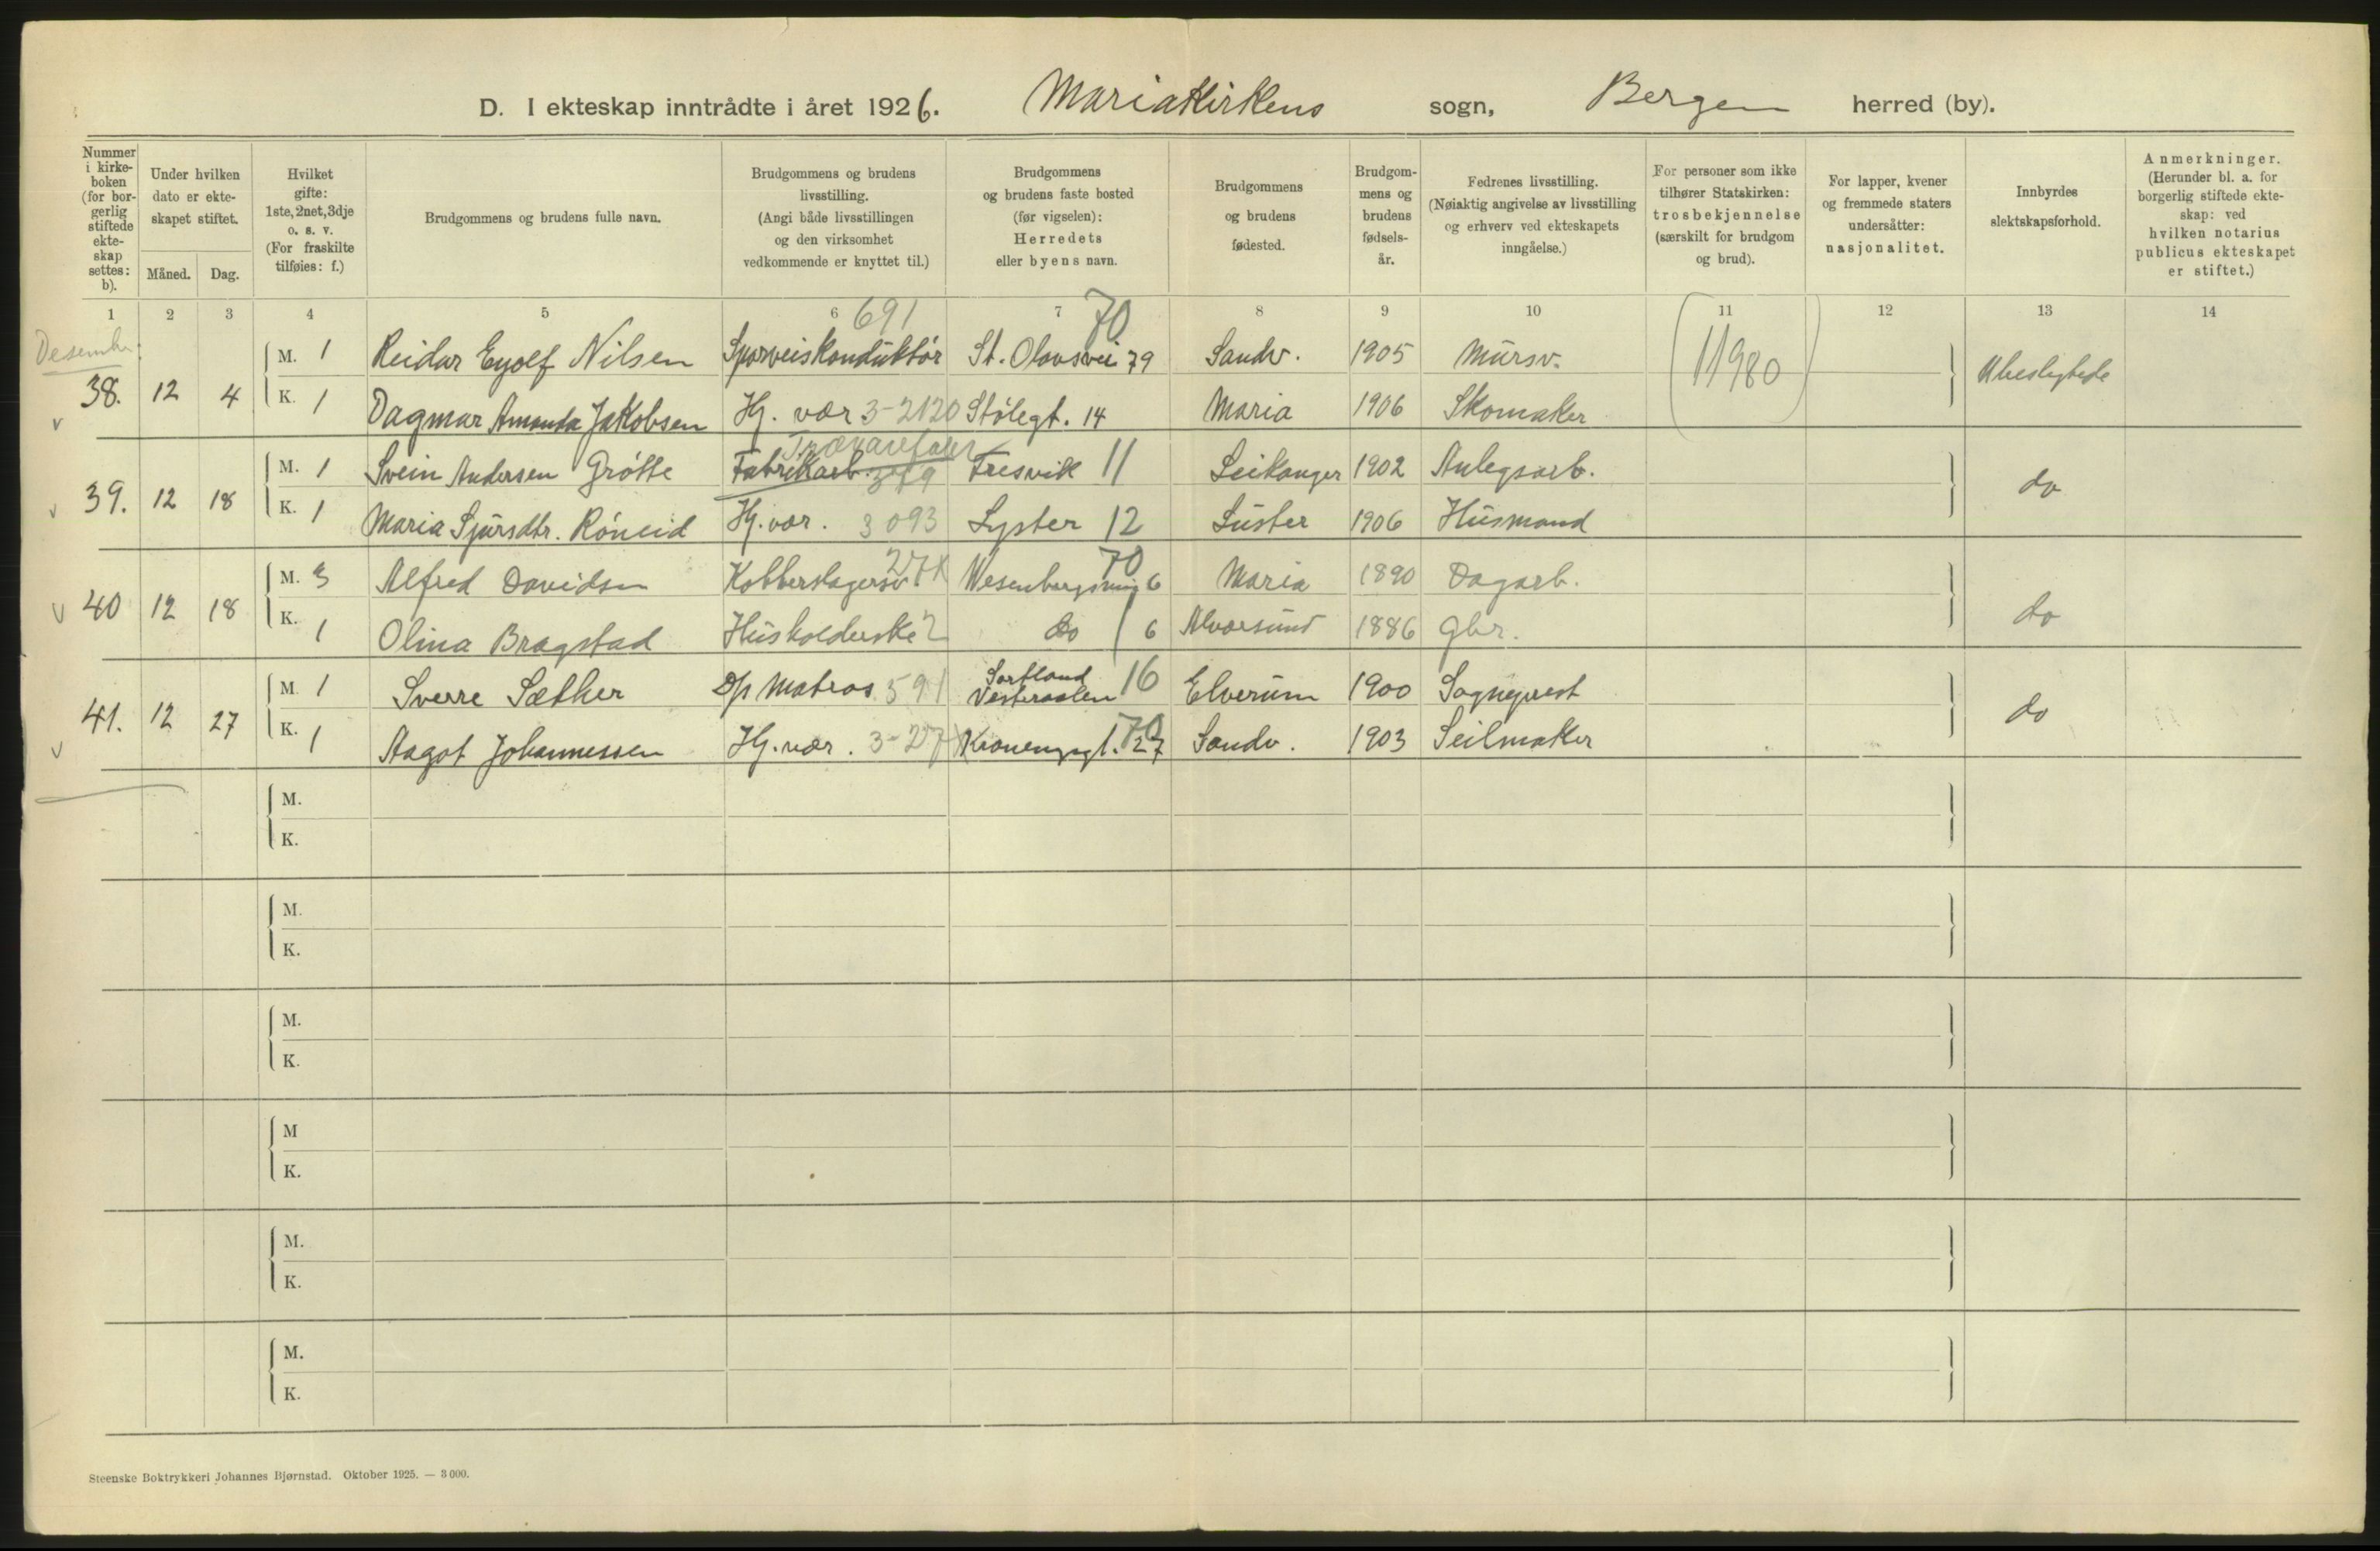 D. I ekteskap inntrådte i året 1926. Mariakirkens sogn, Bergen herred (by).
Nummer i kirke-boken (for bor-gerlig stiftede ekte-skap settes: b).
Under hvilken dato er ekte-skapet stiftet.
Måned. Dag.
Hvilket gifte: 1ste, 2net, 3dje o. s. v. (For fraskilte tilføies: f.)
Brudgommens og brudens fulle navn.
Brudgommens og brudens livsstilling. (Angi både livsstillingen og den virksomhet vedkommende er knyttet til.)
Brudgommens og brudens faste bosted (før vigselen): Herredets eller byens navn.
Brudgommens og brudens fødested.
Brudgom-mens og brudens fødsels-år.
Fedrenes livsstilling. (Nøiaktig angivelse av livsstilling og erhverv ved ekteskapets inngåelse.)
For personer som ikke tilhører Statskirken: trosbekjennelse (særskilt for brudgom og brud).
For lapper, kvener og fremmede staters undersåtter: nasjonalitet.
Innbyrdes slektskapsforhold.
Anmerkninger. (Herunder bl. a. for borgerlig stiftede ekte-skap: ved hvilken notarius publicus ekteskapet er stiftet.)
1 2 3 4 5 6 7 8 9 10 11 12 13 14
Desember
691 70
M. 1 Reidar Eyolf Nilsen Sporveiskonduktör St. Olavsvei 79 Sandv. 1905 Mursv. 11980
38. 12 4 Ubeslegtede
K. 1 Dagmar Amanda Jakobsen Hj. vær 3-2120 Stölegt. 14 Maria 1906 Skomaker
Trævarefabr
M. 1 Svein Andersen Grötte Fabrikarb. 379 Fresvik 11 Leikanger 1902 Anlegsarb.
39. 12 18 do
K. 1 Maria Sjursdtr. Röneid Hj. vær. 3093 Lyster 12 Luster 1906 Husmand
27X 70
M. 3 Alfred Davidsen Kobberslagersv Wesenbergsmug 6 Maria 1890 Dagarb.
40 12 18 do
K. 1 Olina Bragstad Husholderske 2 do 6 Alversund 1886 Gbr.
M. 1 Sverre Sæther D/s Matros 591 Sortland Vesteraalen 16 Elverum 1900 Sogneprest
41. 12 27 do
K. 1 Aagot Johannessen Hj. vær. 3-27X 70 27 Sandv. 1903 Seilmaker
M.
K.
M.
K.
M.
K.
M
K.
M.
K.
M.
K.
Steenske Boktrykkeri Johannes Bjørnstad. Oktober 1925. — 3000.